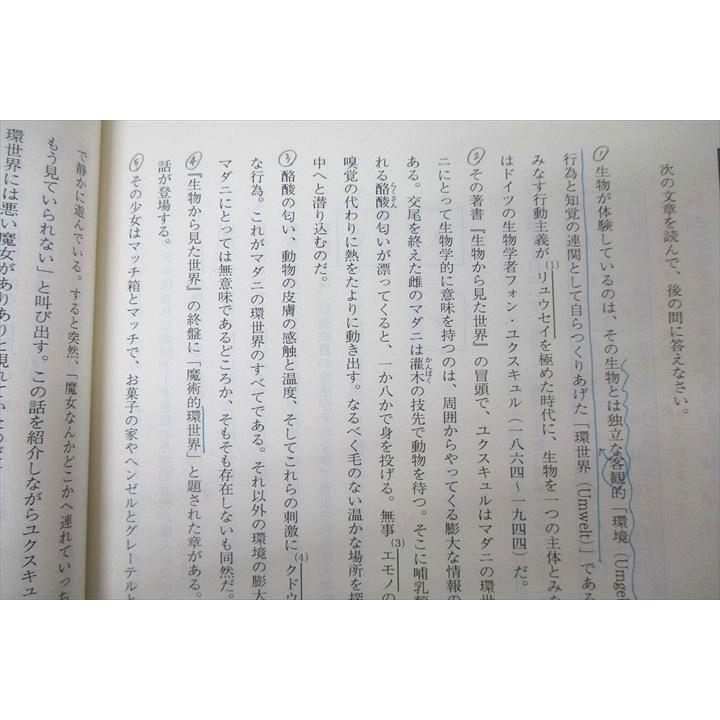 次の文章を読んで、後の問に答えなさい。
① 生物が体験しているのは、その生物とは独立な客観的「環境（Umgeb
行為と知覚の連関として自らつくりあげた「環世界（Umwelt）」である
みなす行動主義が(1)リュウセイを極めた時代に、生物を一つの主体とみな
はドイツの生物学者フォン・ユクスキュル（一八六四〜一九四四）だ。
② その著書『生物から見た世界』の冒頭で、ユクスキュルはマダニの環世
ニにとって生物学的に意味を持つのは、周囲からやってくる膨大な情報の
ある。交尾を終えた雌のマダニは灌木かんぼくの技先で動物を待つ。そこに哺乳類
れる酪酸らくさんの匂いが漂ってくると、一か八かで身を投げる。無事(3)エモノの
嗅覚の代わりに熱をたよりに動き出す。なるべく毛のない温かな場所を探
中へと潜り込むのだ。
③ 酪酸の匂い、動物の皮膚の感触と温度、そしてこれらの刺激に(4)クドウ
な行為。これがマダニの環世界のすべてである。それ以外の環境の膨大
マダニにとっては無意味であるどころか、そもそも存在しないも同然だ。
④ 『生物から見た世界』の終盤に「魔術的環世界」と題された章がある。
話が登場する。
⑤ その少女はマッチ箱とマッチで、お菓子の家やヘンゼルとグレーテルと
で静かに遊んでいる。すると突然、「魔女なんかどこかへ連れていっち
もう見ていられない」と叫び出す。この話を紹介しながらユクスキュ
環世界には悪い魔女がありありと現れていたのだ